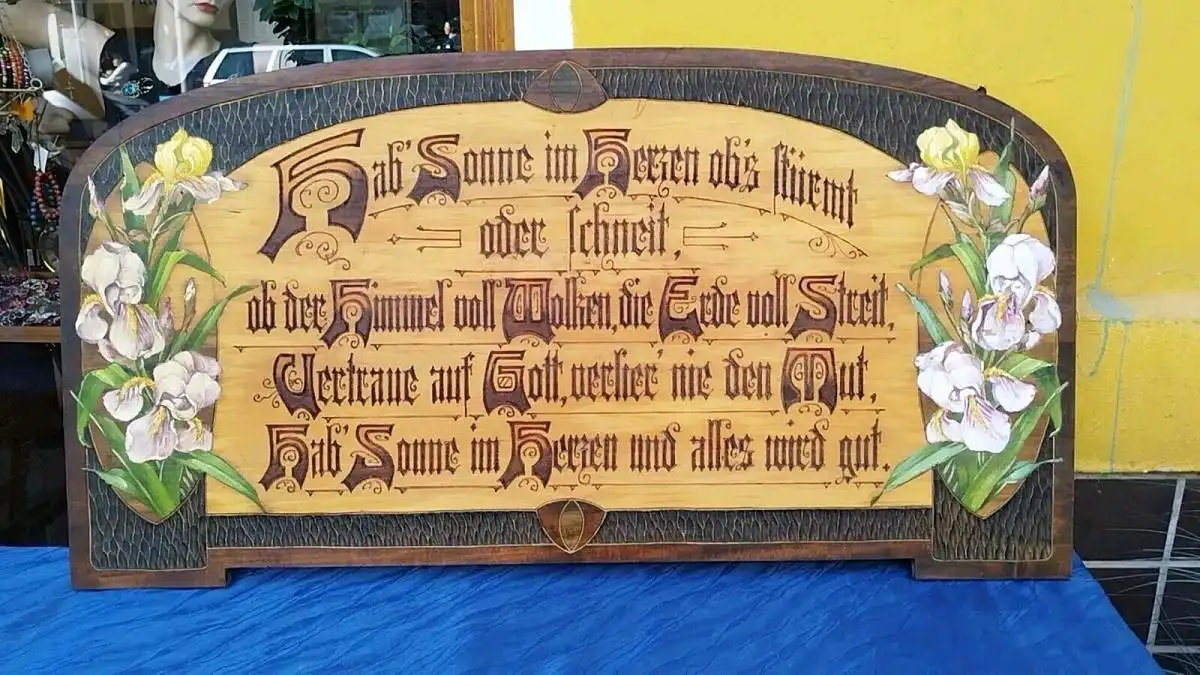 Hab' Sonne im Herzen ob's stürmt
oder schneit,
ob der Himmel voll Wolken, die Erde voll Streit,
Vertraue auf Gott, verlier' nie den Mut,
Hab' Sonne im Herzen und alles wird gut.